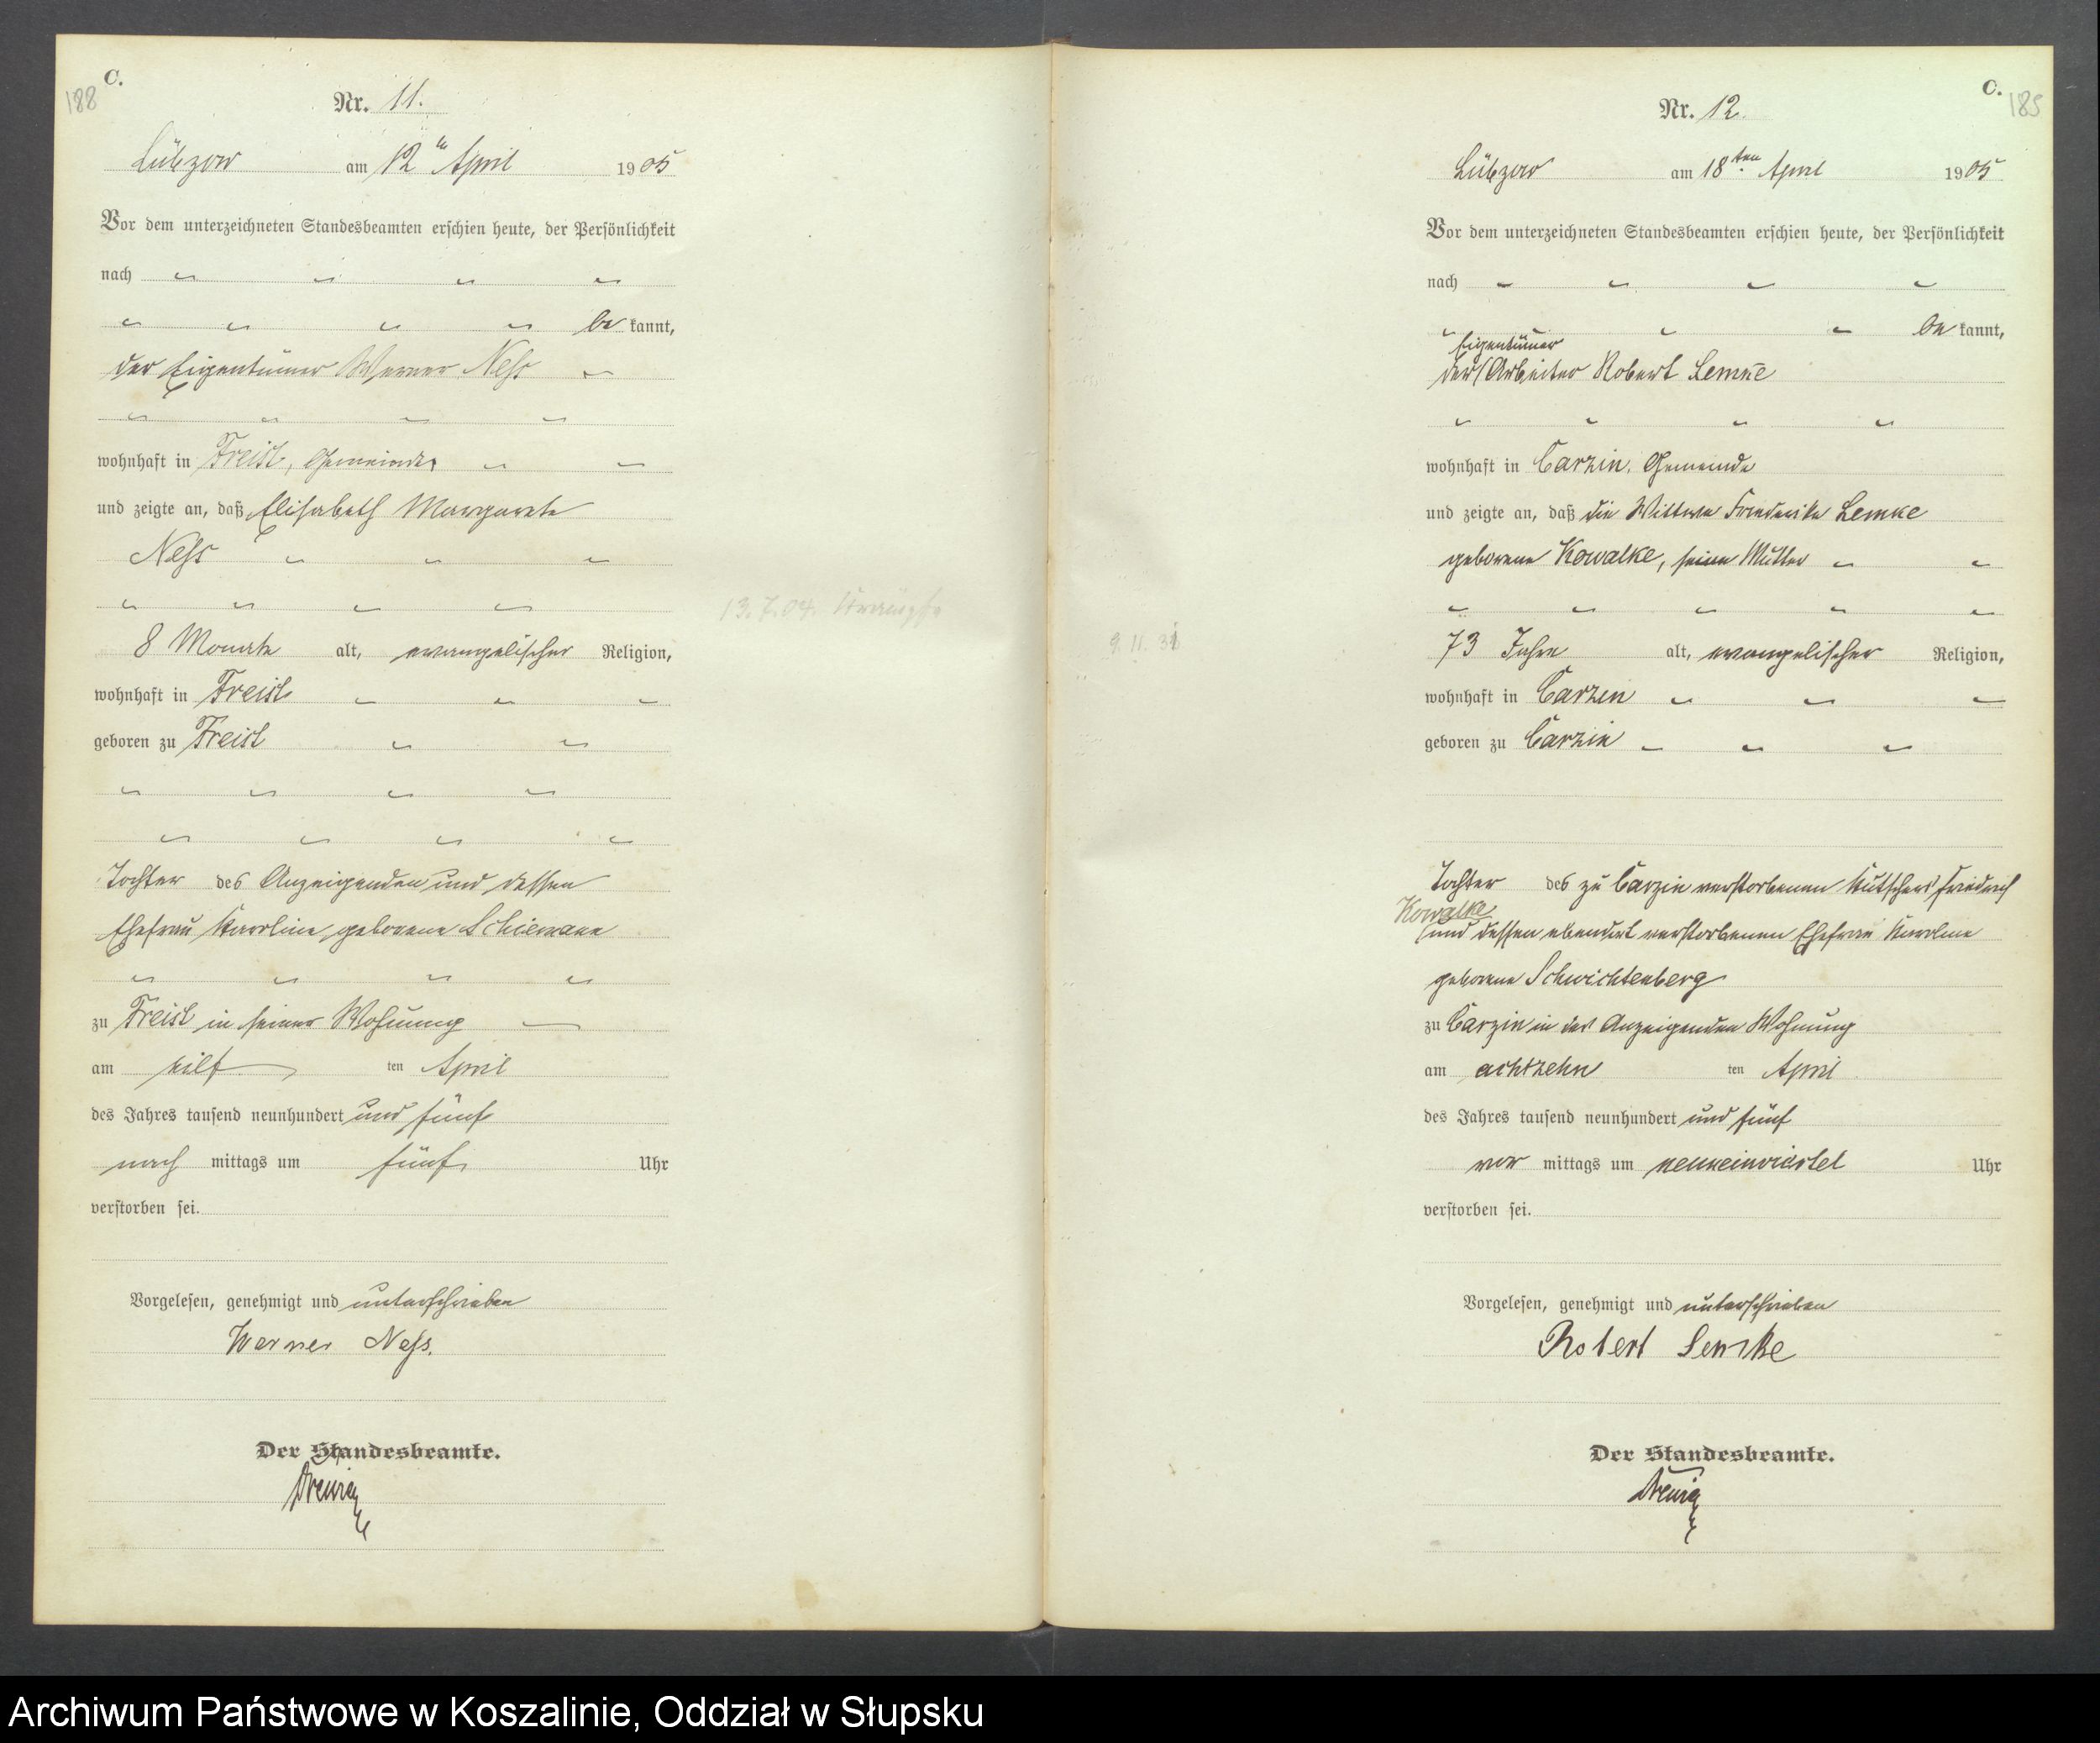 C.
188
Nr. 11.
Lübzow am 12 ten April 1905
Vor dem unterzeichneten Standesbeamten erschien heute, der Persönlichkeit
nach
be kannt,
der Eigentümer Werner Neß
wohnhaft in Freist, Gemeinde
und zeigte an, daß Elisabeth Margarete
Neß
13.7.04. Krämpfe
8 Monate alt, evangelischer Religion,
wohnhaft in Freist
geboren zu Freist
Tochter des Anzeigenden und dessen
Ehefrau Karoline, geborene Schiemann
zu Freist in seiner Wohnung
am eilf ten April
des Jahres tausend neunhundert und fünf
nach mittags um fünf Uhr
verstorben sei.
Vorgelesen, genehmigt und unterschrieben
Werner Neß.
Der Standesbeamte.
C.
185
Nr. 12.
Lübzow am 18 ten April 1905
Vor dem unterzeichneten Standesbeamten erschien heute, der Persönlichkeit
nach
be kannt,
Eigentümer
der Arbeiter Robert Lemke
wohnhaft in Carzin, Gemeinde
und zeigte an, daß die Wittwe Friederike Lemke
geborene Kowalke, seine Mutter
9. 11. 31
73 Jahre alt, evangelischer Religion,
wohnhaft in Carzin
geboren zu Carzin
Tochter des zu Carzin verstorbenen Kutschers Friedrich
Kowalke
und dessen ebendort verstorbenen Ehefrau Karoline
geborene Schwichtenberg
zu Carzin in des Anzeigenden Wohnung
am achtzehn ten April
des Jahres tausend neunhundert und fünf
vor mittags um neuneinviertel Uhr
verstorben sei.
Vorgelesen, genehmigt und unterschrieben
Robert Lemke
Der Standesbeamte.
Archiwum Państwowe w Koszalinie, Oddział w Słupsku